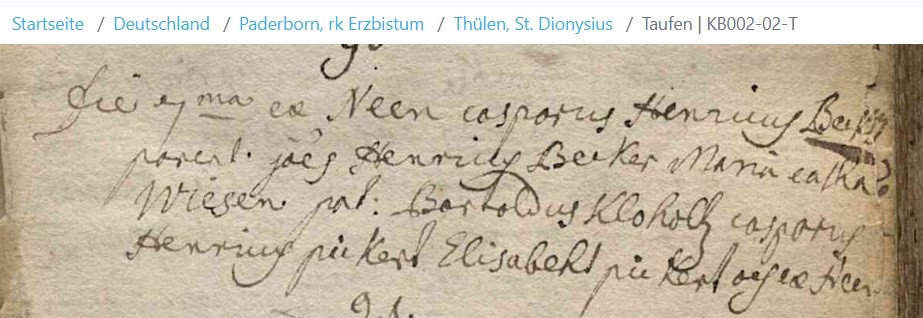 Startseite / Deutschland / Paderborn, rk Erzbistum / Thülen, St. Dionysius / Taufen | KB002-02-T
90.
Die ej ma ex Neen casparus Henricus Becker
parent. joes Henricus Becker Maria catha
Wiesen pat: Bartoldus Kloholtz casparus
Henricus pickert Elisabeht pickert oes ex Neen
91.